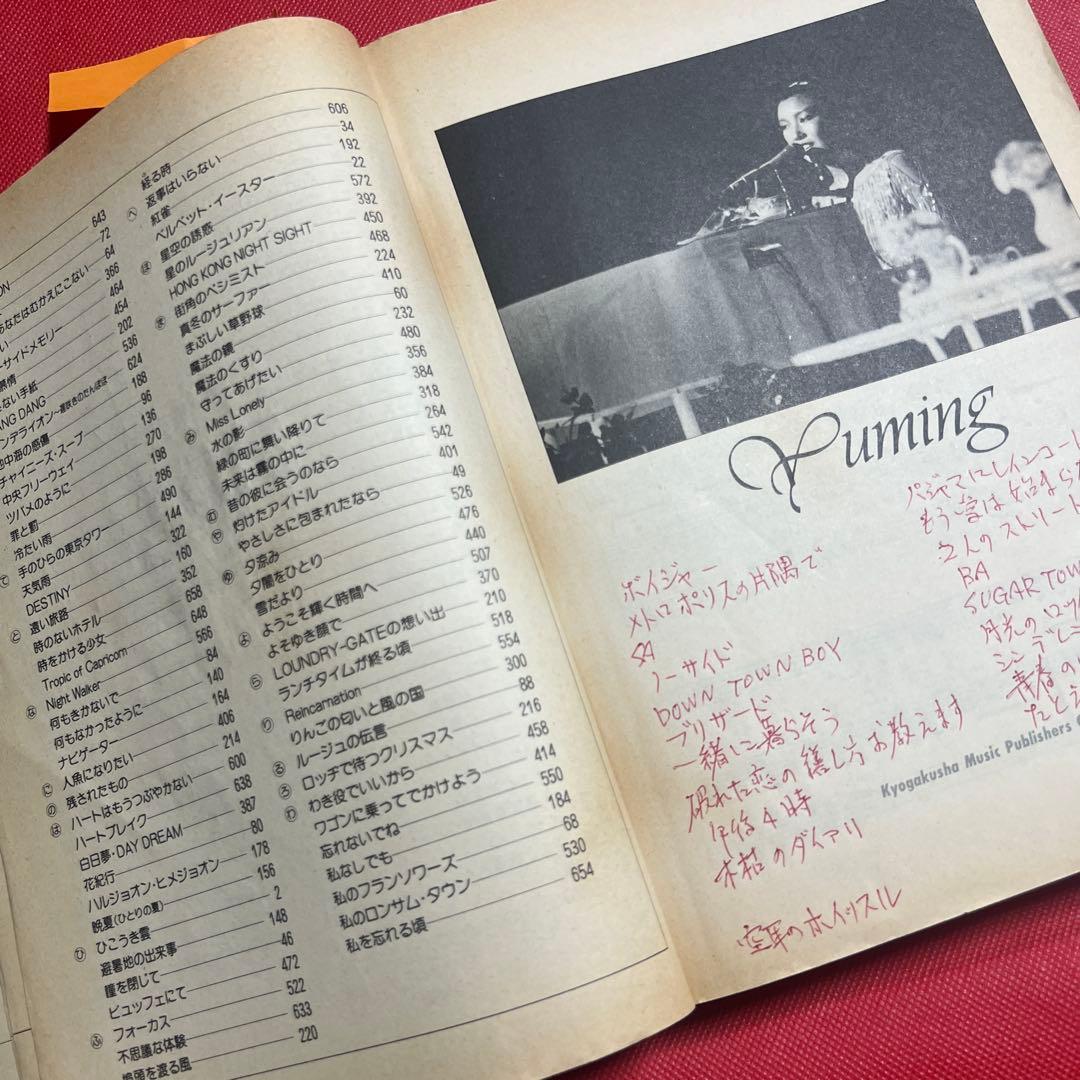 ON
あなたはむかえにこない
い
ーサイドメモリー
ない手紙
ANG DANG
ンデライオン〜遅咲きのたんぽぽ
地中海の感傷
チャイニーズ・スープ
中央フリーウェイ
ツバメのように
罪と罰
冷たい雨
て 手のひらの東京タワー
天気雨
DESTINY
と 遠い旅路
時のないホテル
時をかける少女
Tropic of Capricorn
な Night Walker
何もきかないで
何もなかったように
ナビゲーター
に 人魚になりたい
の 残されたもの
は ハートはもうつぶやかない
ハートブレイク
白日夢・DAY DREAM
花紀行
ハルジョオン・ヒメジョオン
晩夏(ひとりの夏)
ひ ひこうき雲
避暑地の出来事
瞳を閉じて
ビュッフェにて
フォーカス
ふ 不思議な体験
埠頭を渡る風
643
72
64
366
464
454
202
536
624
188
96
136
270
198
286
490
144
322
160
352
658
648
566
84
140
164
406
214
600
638
387
80
178
156
2
148
46
472
522
633
220
経る時
へ 返事はいらない
紅雀
ベルベット・イースター
ほ 星空の誘惑
星のルージュリアン
HONG KONG NIGHT SIGHT
ま 街角のペシミスト
真冬のサーファー
まぶしい草野球
魔法の鏡
魔法のくすり
守ってあげたい
み Miss Lonely
水の影
緑の町に舞い降りて
未来は霧の中に
む 昔の彼に会うのなら
や 灼けたアイドル
やさしさに包まれたなら
ゆ 夕涼み
夕闇をひとり
雪だより
よ ようこそ輝く時間へ
よそゆき顔で
ら LOUNDRY-GATEの想い出
ランチタイムが終る頃
り Reincarnation
りんごの匂いと風の国
る ルージュの伝言
ろ ロッヂで待つクリスマス
わ わき役でいいから
ワゴンに乗ってでかけよう
忘れないでね
私なしでも
私のフランソワーズ
私のロンサム・タウン
私を忘れる頃
606
34
192
22
572
392
450
468
224
410
60
232
480
356
384
318
264
401
49
526
476
440
507
370
210
518
554
300
88
216
458
414
550
184
68
530
654
Yuming
ボイジャー
メトロポリスの片隅で
ノーサイド
DOWN TOWN BOY
ブリザード
一緒に暮らそう
破れた恋の繕し方お教えます
午後4時
木枯のダイアリ
空耳のホイッスル
パジャマにレインコー
もう愛は始まら
2人のストリート
BA
SUGAR TOW
月光のロ
シンデレ
青春の
たとえ
Kyogakusha Music Publishers